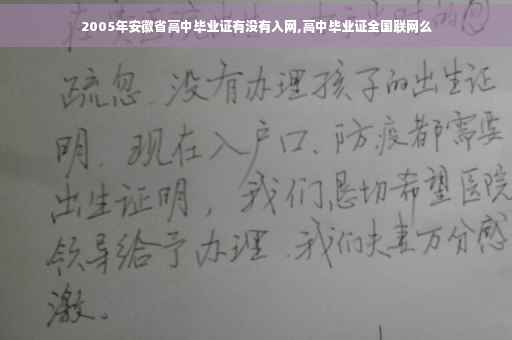 2005年安徽省高中毕业证有没有入网,高中毕业证全国联网么
疏忽.没有办理孩子的出生证
明.现在入户口、防疫都需要
出生证明，我们恳切希望医院
领导给予办理.我们夫妻万分感
激。